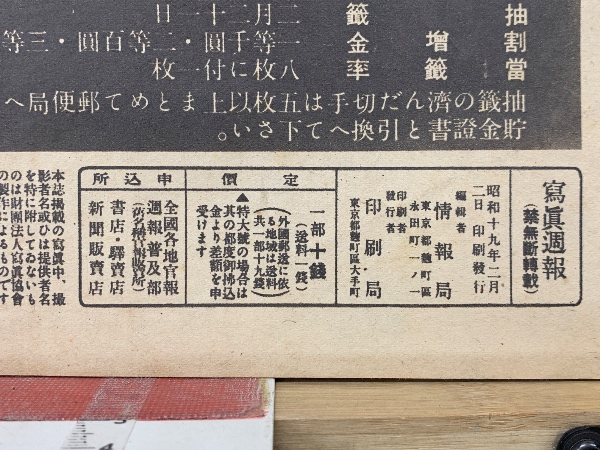 抽籤 二月二十一日
割増金 一等千圓・二等百圓・三等
當籤率 八枚に付一枚
抽籤の濟んだ切手は五枚以上まとめて郵便局へ
貯金證書と引換へて下さい。
寫眞週報
(禁無斷轉載)
昭和十九年二月
二日 印刷發行
編輯者
情報局
東京都麹町區
永田町一ノ一
印刷者
發行者
印刷局
東京都麹町區大手町
定價
一部十錢
(送料一錢)
(外國郵送に依
る地域は送料
共一部十九錢)
▲特大號の場合は
其の都度御拂込
金より差額を申
受けます
申込所
全國各地官報
週報普及部
(舊名稱官報販賣所)
書店・驛賣店
新聞販賣店
本誌掲載の寫眞中、撮
影者名或ひは提供者名
を特に附してゐないも
のは財團法人寫眞協會
の製作によるものです